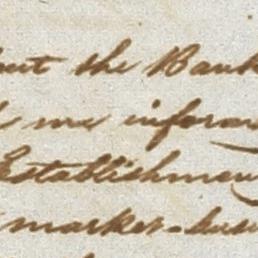 but the Bank
me inform
Establishmen
market-